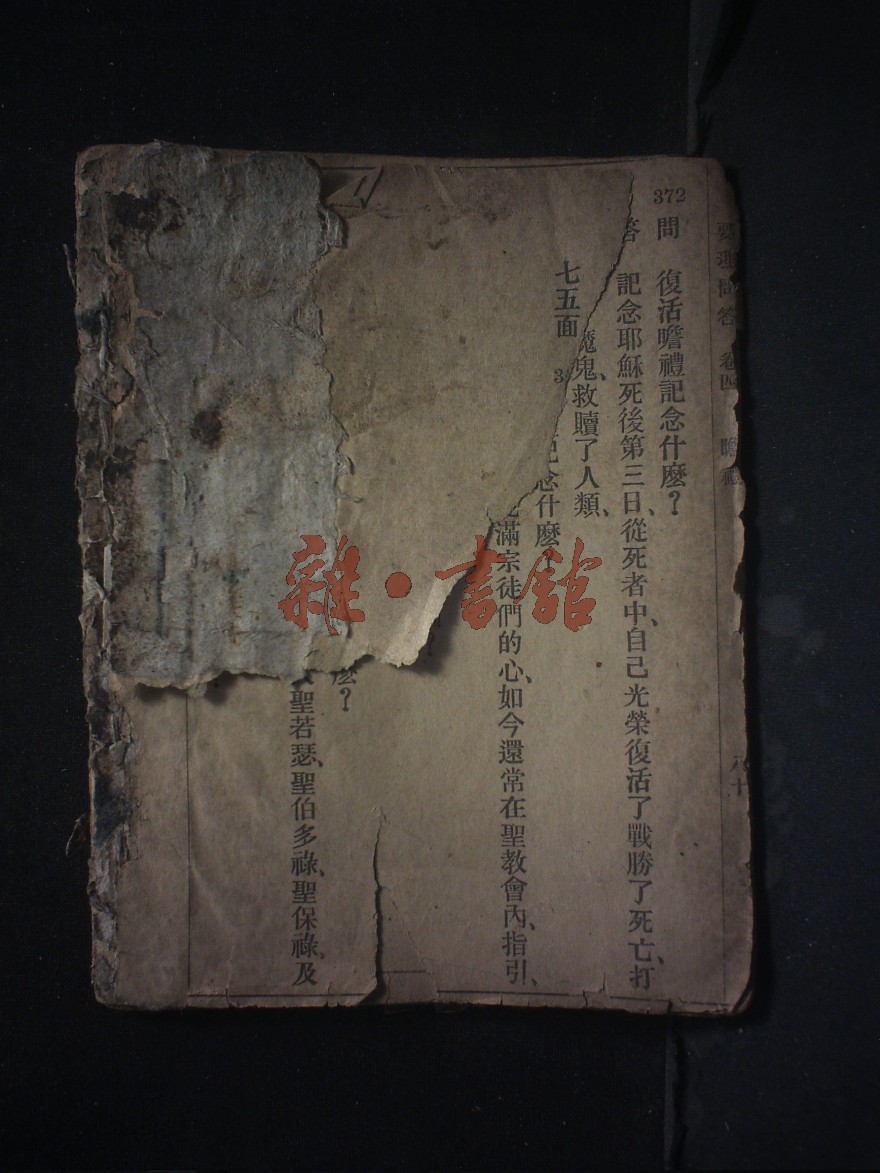 要理問答 卷四 瞻禮 八十
372
問 復活瞻禮記念什麼?
答 記念耶穌死後第三日、從死者中、自己光榮復活了戰勝了死亡、打
魔鬼、救贖了人類、
七五面
記念什麼?
滿宗徒們的心、如今還常在聖教會內、指引、
?
麼?
聖若瑟、聖伯多祿、聖保祿、及
雜·書館